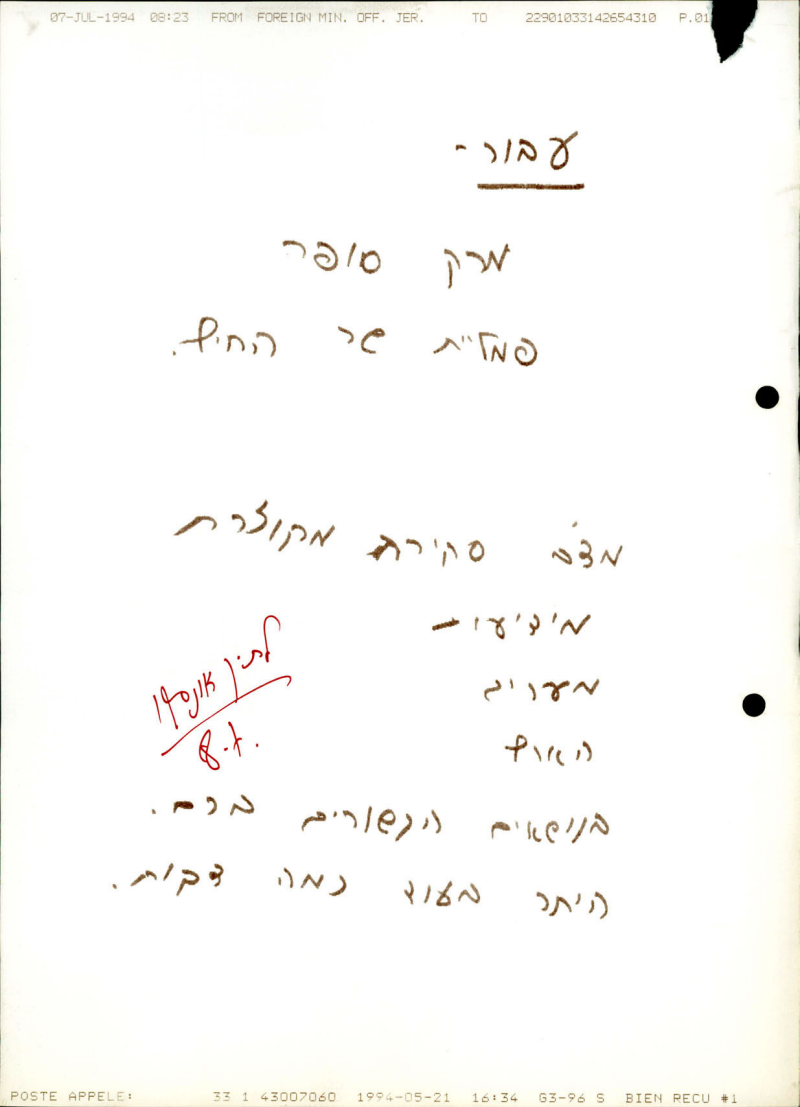 07-JUL-1994 08:23 FROM FOREIGN MIN. OFF. JER. TO 22901033142654310 P.01
עבור-
מרק סופר
פמליית שר החוץ.
מצ"ב סקירת מקוצרת
מידיעו-
מעריב
הארץ
בנושאים הקשורים ברם.
היתר בעוד כמה דקות.
לתיק אונסקו
8.7.
POSTE APPELE: 33 1 43007060 1994-05-21 16:34 G3-96 S BIEN RECU #1